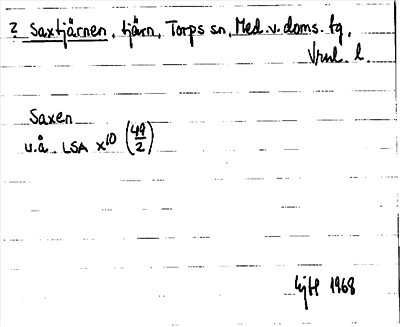 ? Saxtjärnen, tjärn, Torps sn, Med. v. doms. tg,
Vnl. l.
Saxen
u.å. LSA x¹⁰ (49/2)
1968